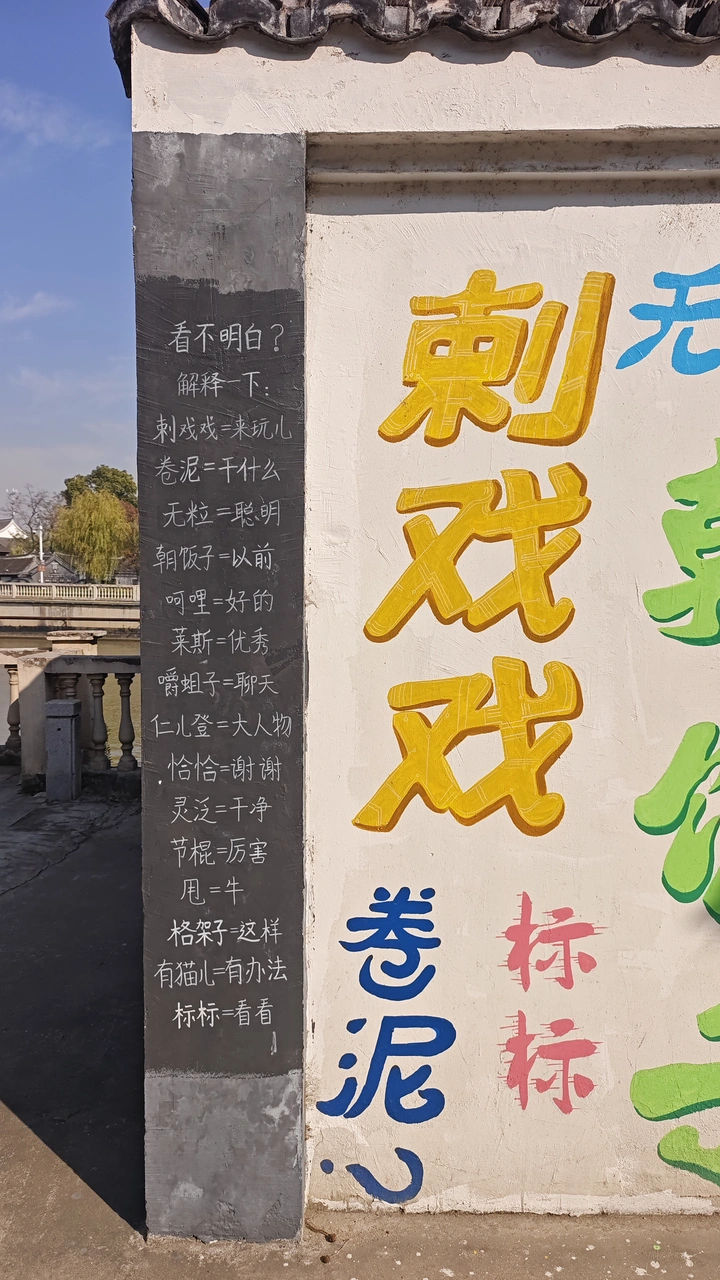 看不明白？
解释一下：
刺戏戏=来玩儿
卷泥=干什么
无粒=聪明
朝饭子=以前
呵哩=好的
莱斯=优秀
嚼蛆子=聊天
仁儿登=大人物
恰恰=谢谢
灵泛=干净
节棍=厉害
甩=牛
格架子=这样
有猫儿=有办法
标标=看看
刺
戏
戏
卷
泥
？
标
标
无